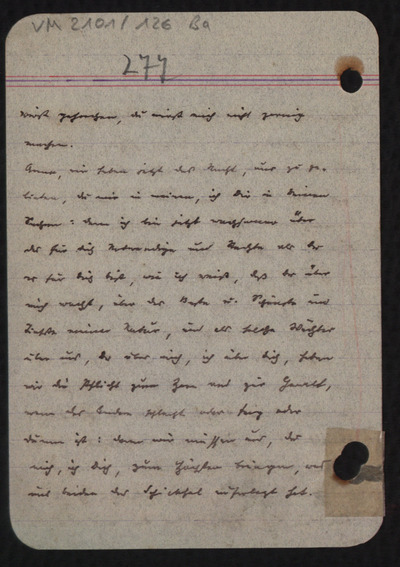 VM 2101/126 Ba
277
wirst gehorchen, du wirst mich nicht zornig
machen.
Anna, wir haben jetzt das Recht, uns zu ge-
bieten, du mir in meinen, ich dir in deinen
Sachen: denn ich bin jetzt wachsamer über
das für dich Notwendige und Rechte als du
es für dich bist, wie ich weiß, daß du über
mich wachst, über das Beste u. Schönste und
Tiefste meiner Natur, und als solche Wächter
über uns, du über mich, ich über dich, haben
wir die Pflicht zum Zorn und zur Gewalt,
wenn der andere schlecht oder feig oder
dumm ist: denn wir müssen uns, du
mich, ich dich, zum Höchsten bringen, was
uns beiden das Schicksal auferlegt hat.